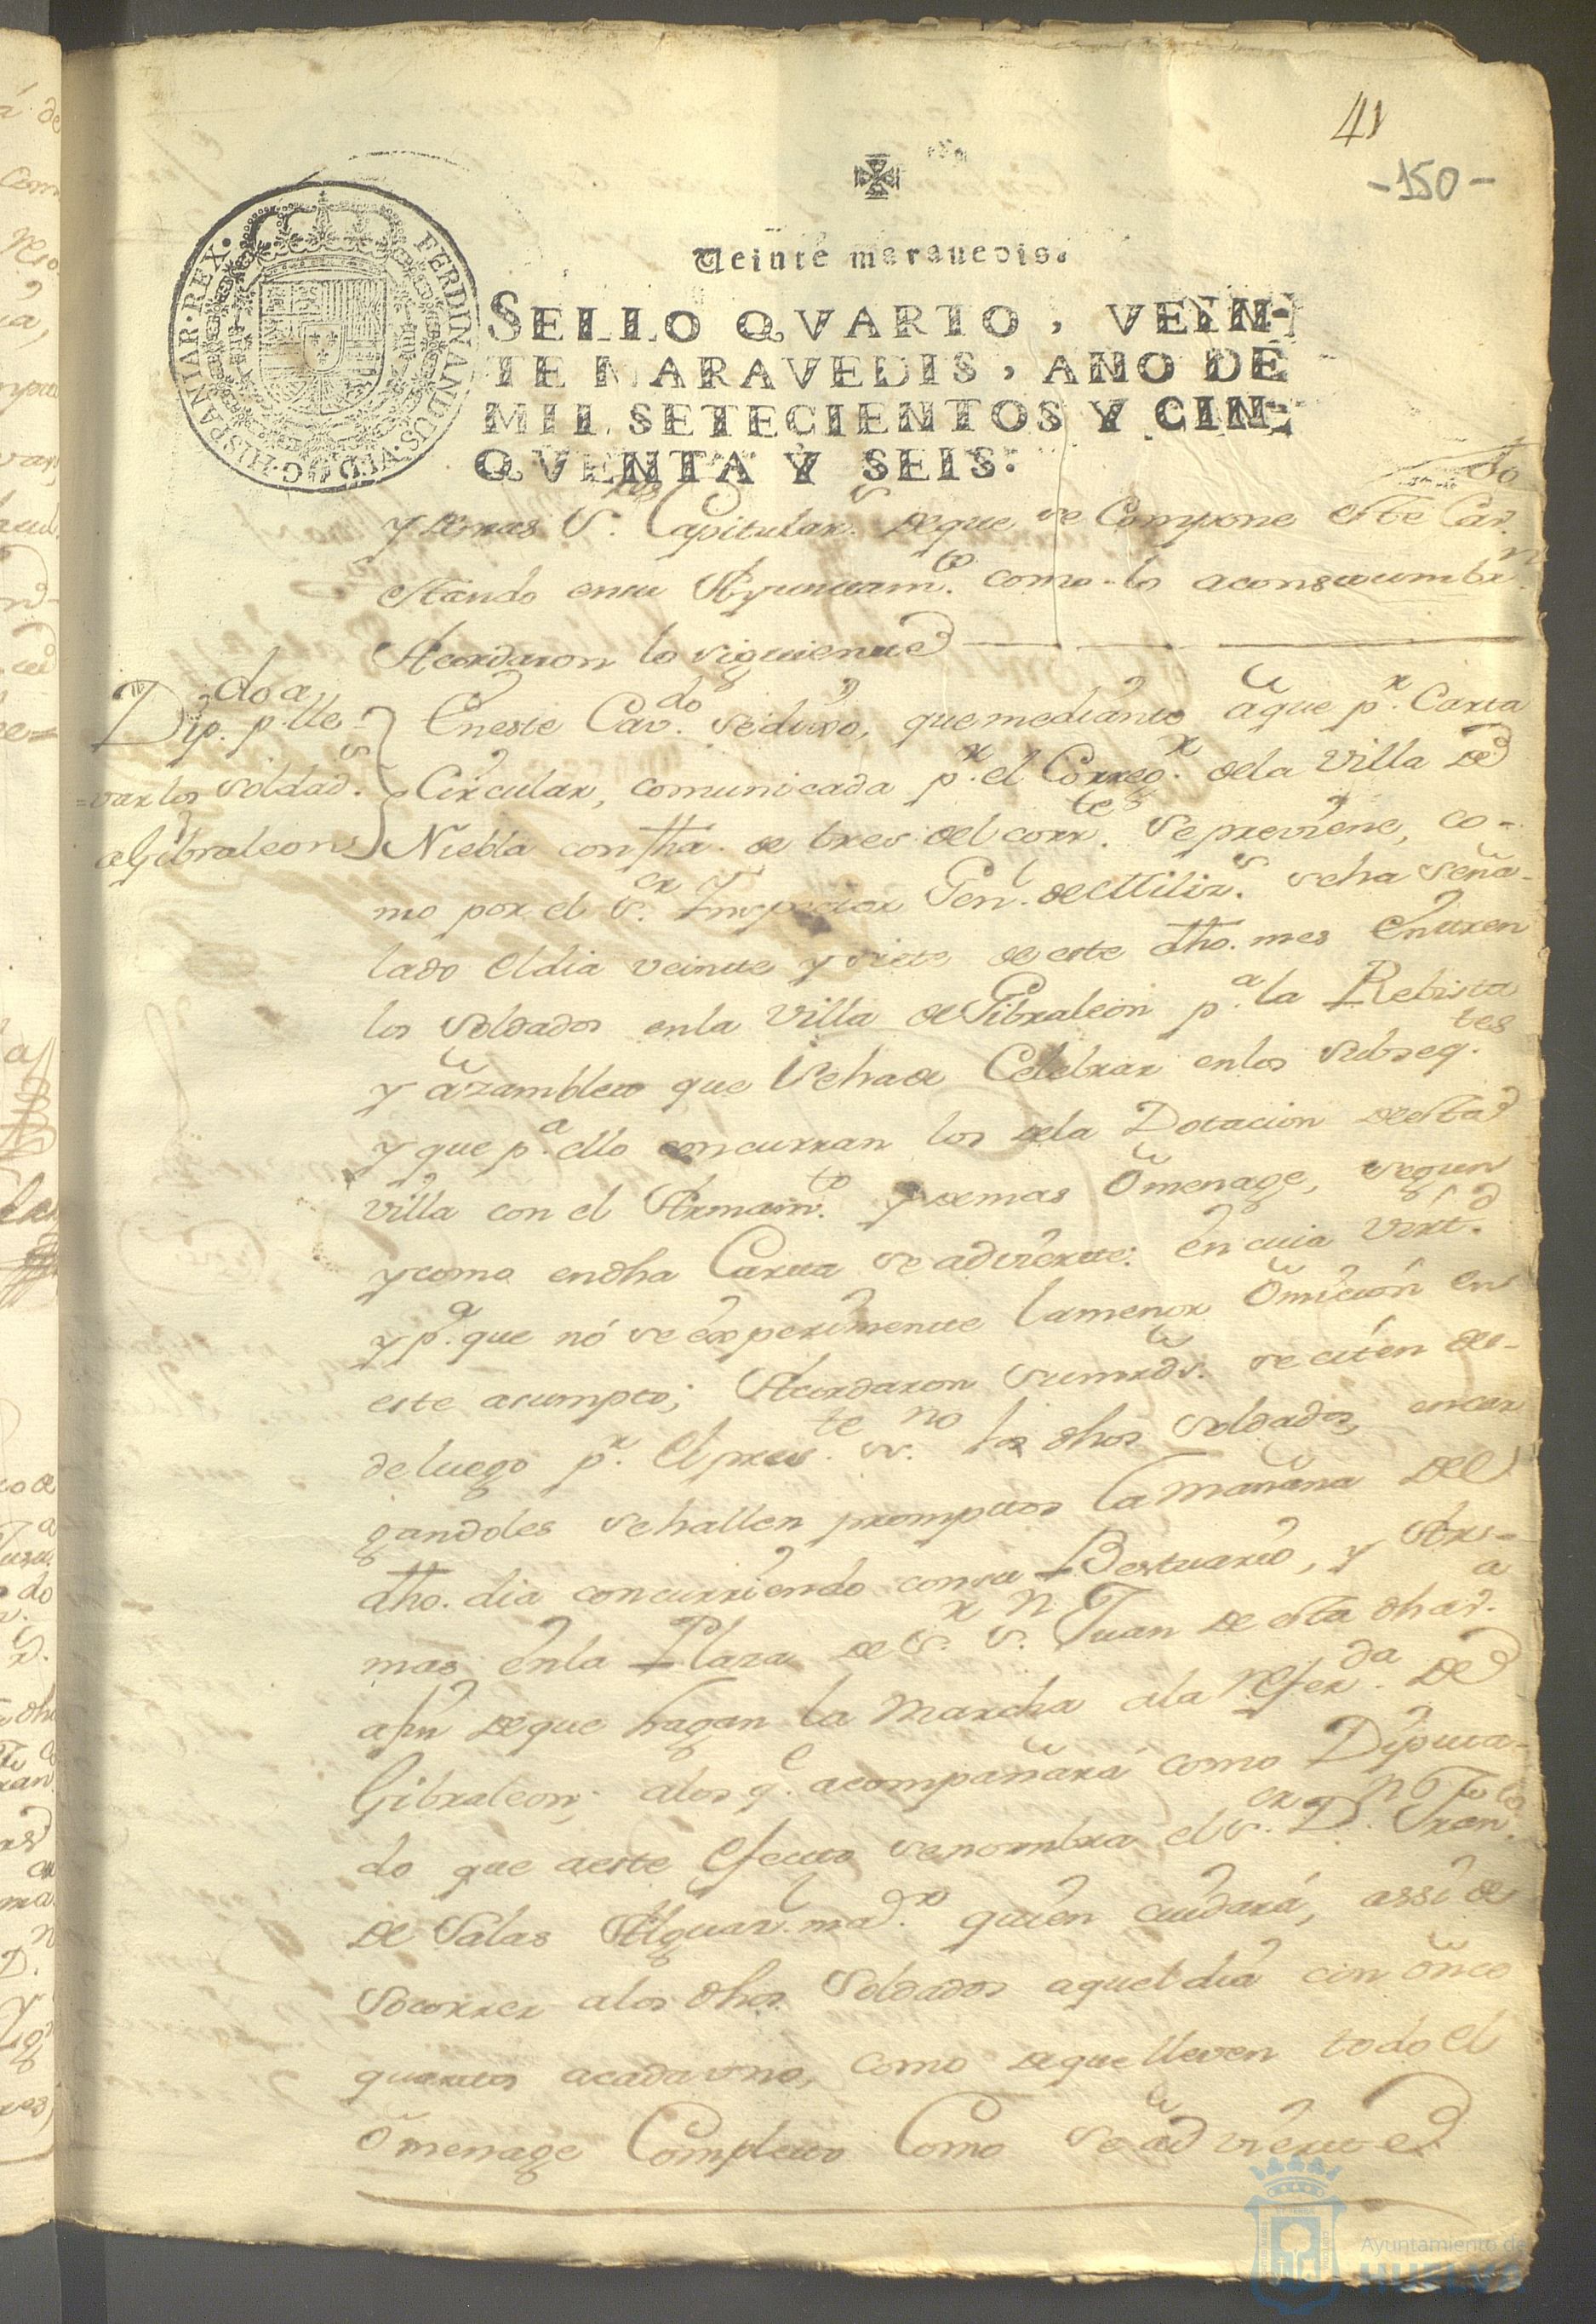 41
-150-
Veinte maravedis.
SELLO QVARTO, VEIN-
TE MARAVEDIS, AÑO DE
MIL SETECIENTOS Y CIN-
QVENTA Y SEIS.
HISPANIAR·REX· FERDINANDUS·VI·D·G·
y demas S.res Capitular.s de que se Compone este Cav.do
estando en su Ayuntam.to como lo aconstumbr.n
Acordaron lo siguiente
Dip.do a p.a lle-
var los soldad.s
a Gibraleon
En este Cav.do se dixo, que mediante a que p.r Carta
Circular, comunicada p.r el Correg.r de la Villa de
Niebla con fha. de tres del corr.te se previene, co-
mo por el S.or Inspector Gen.l de Miliz.s se ha seña-
lado el dia veinte y siete de este dho. mes entren
los Soldados en la Villa de Gibraleon p.a la Rebista
y azamblea que se ha de Celebrar en los subseq.tes
y que p.a ello concurran los de la Dotacion de esta
villa con el Armam.to y demas omenage, segun
y como en dha Carta se advierte: en cuia virt.d
y p.a que nó se experimente la menor omicion en
este asumpto; Acordaron sus mrds. se citen des-
de luego p.r el pres.te ss.no los dhos Soldados, encar
gandoles se hallen promptos la mañana del
dho. dia concurriendo con su Bestuario, y Ar-
mas en la Plaza de S.r S.n Juan de esta dha V.a
a fin de que hagan la Marcha a la refer.da de
Gibraleon; a los q.e acompañará como Diputa-
do que a este efecto se nombra el S.or D.n Fran.co
de Salas Alguar.l ma.or quien cuidará, assi de
Socorrer a los dhos Soldados aquel dia con once
quartos a cada uno, como de que lleven todo el
omenage Completo Como se advierte
Ayuntamiento de
HUELVA